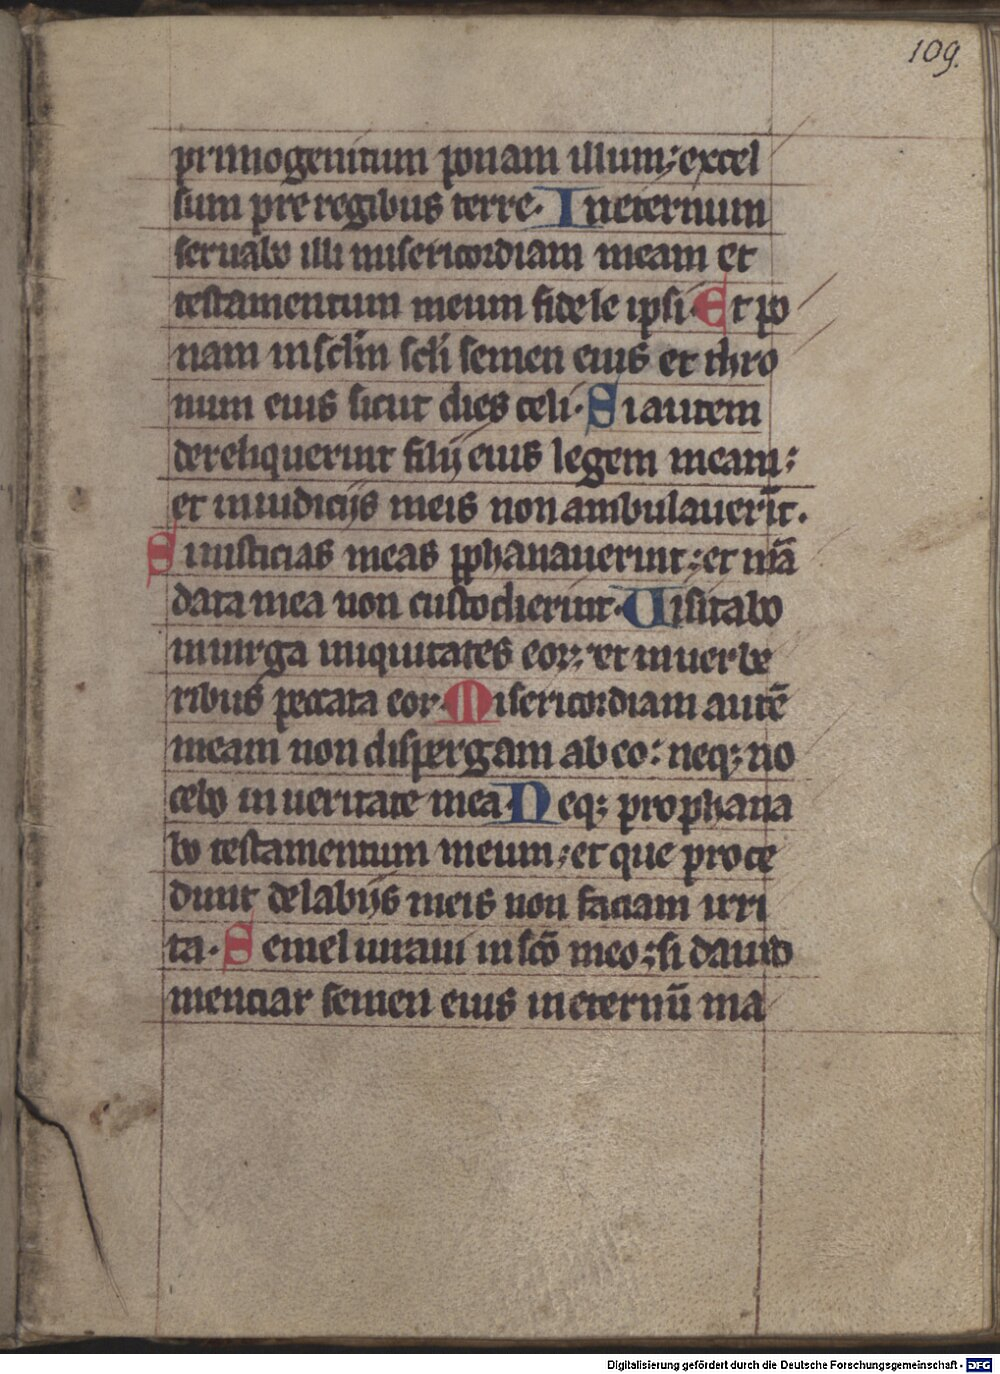 109.
primogenitum ponam illum; excel
sum pre regibus terre. In eternum
seruabo illi misericordiam meam et
testamentum meum fidele ipsi. Et po
nam in sclm scli semen eius et thro
num eius sicut dies celi. Si autem
dereliquerint filij eius legem meam;
et in iudicijs meis non ambulauerīt.
Si iusticias meas pphanauerint; et mā
data mea non custodierint. Uisitabo
in uirga iniquitates eorꝝ; et in uerbe
ribus peccata eorꝝ. Misericordiam autē
meam non dispergam ab eo: neqꝫ no
cebo in ueritate mea. Neqꝫ prophana
bo testamentum meum; et que proce
dunt de labijs meis non faciam irri
ta. Semel iuraui in scō meo; si dauid
mentiar semen eius in eternū ma
Digitalisierung gefördert durch die Deutsche Forschungsgemeinschaft - DFG